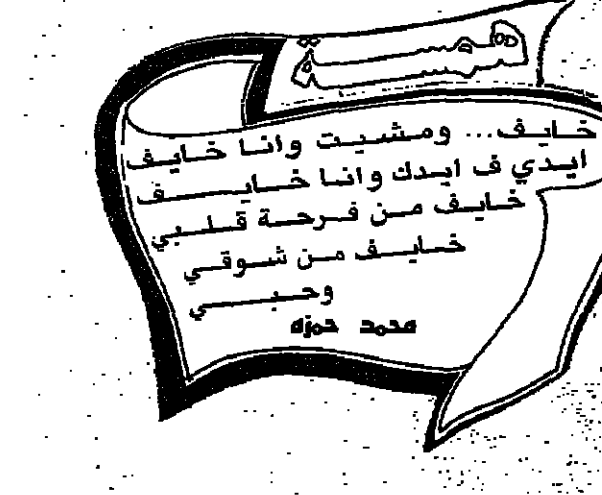 همسة
خايف... ومشيت وانا خايف
ايدي ف ايدك وانا خايف
خايف من فرحة قلبي
خايف من شوقي
وحبي
محمد حمزه